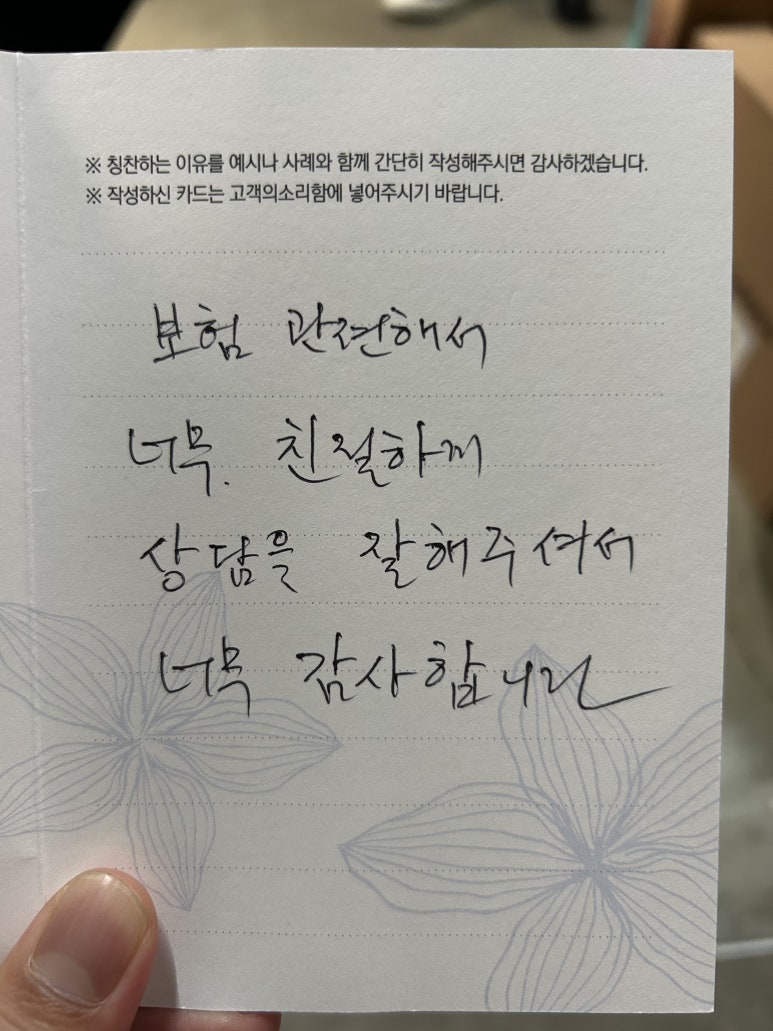 ※ 칭찬하는 이유를 예시나 사례와 함께 간단히 작성해주시면 감사하겠습니다.
※ 작성하신 카드는 고객의소리함에 넣어주시기 바랍니다.
보험 관련해서
너무. 친절하게
상담을 잘해주셔서
너무 감사합니다